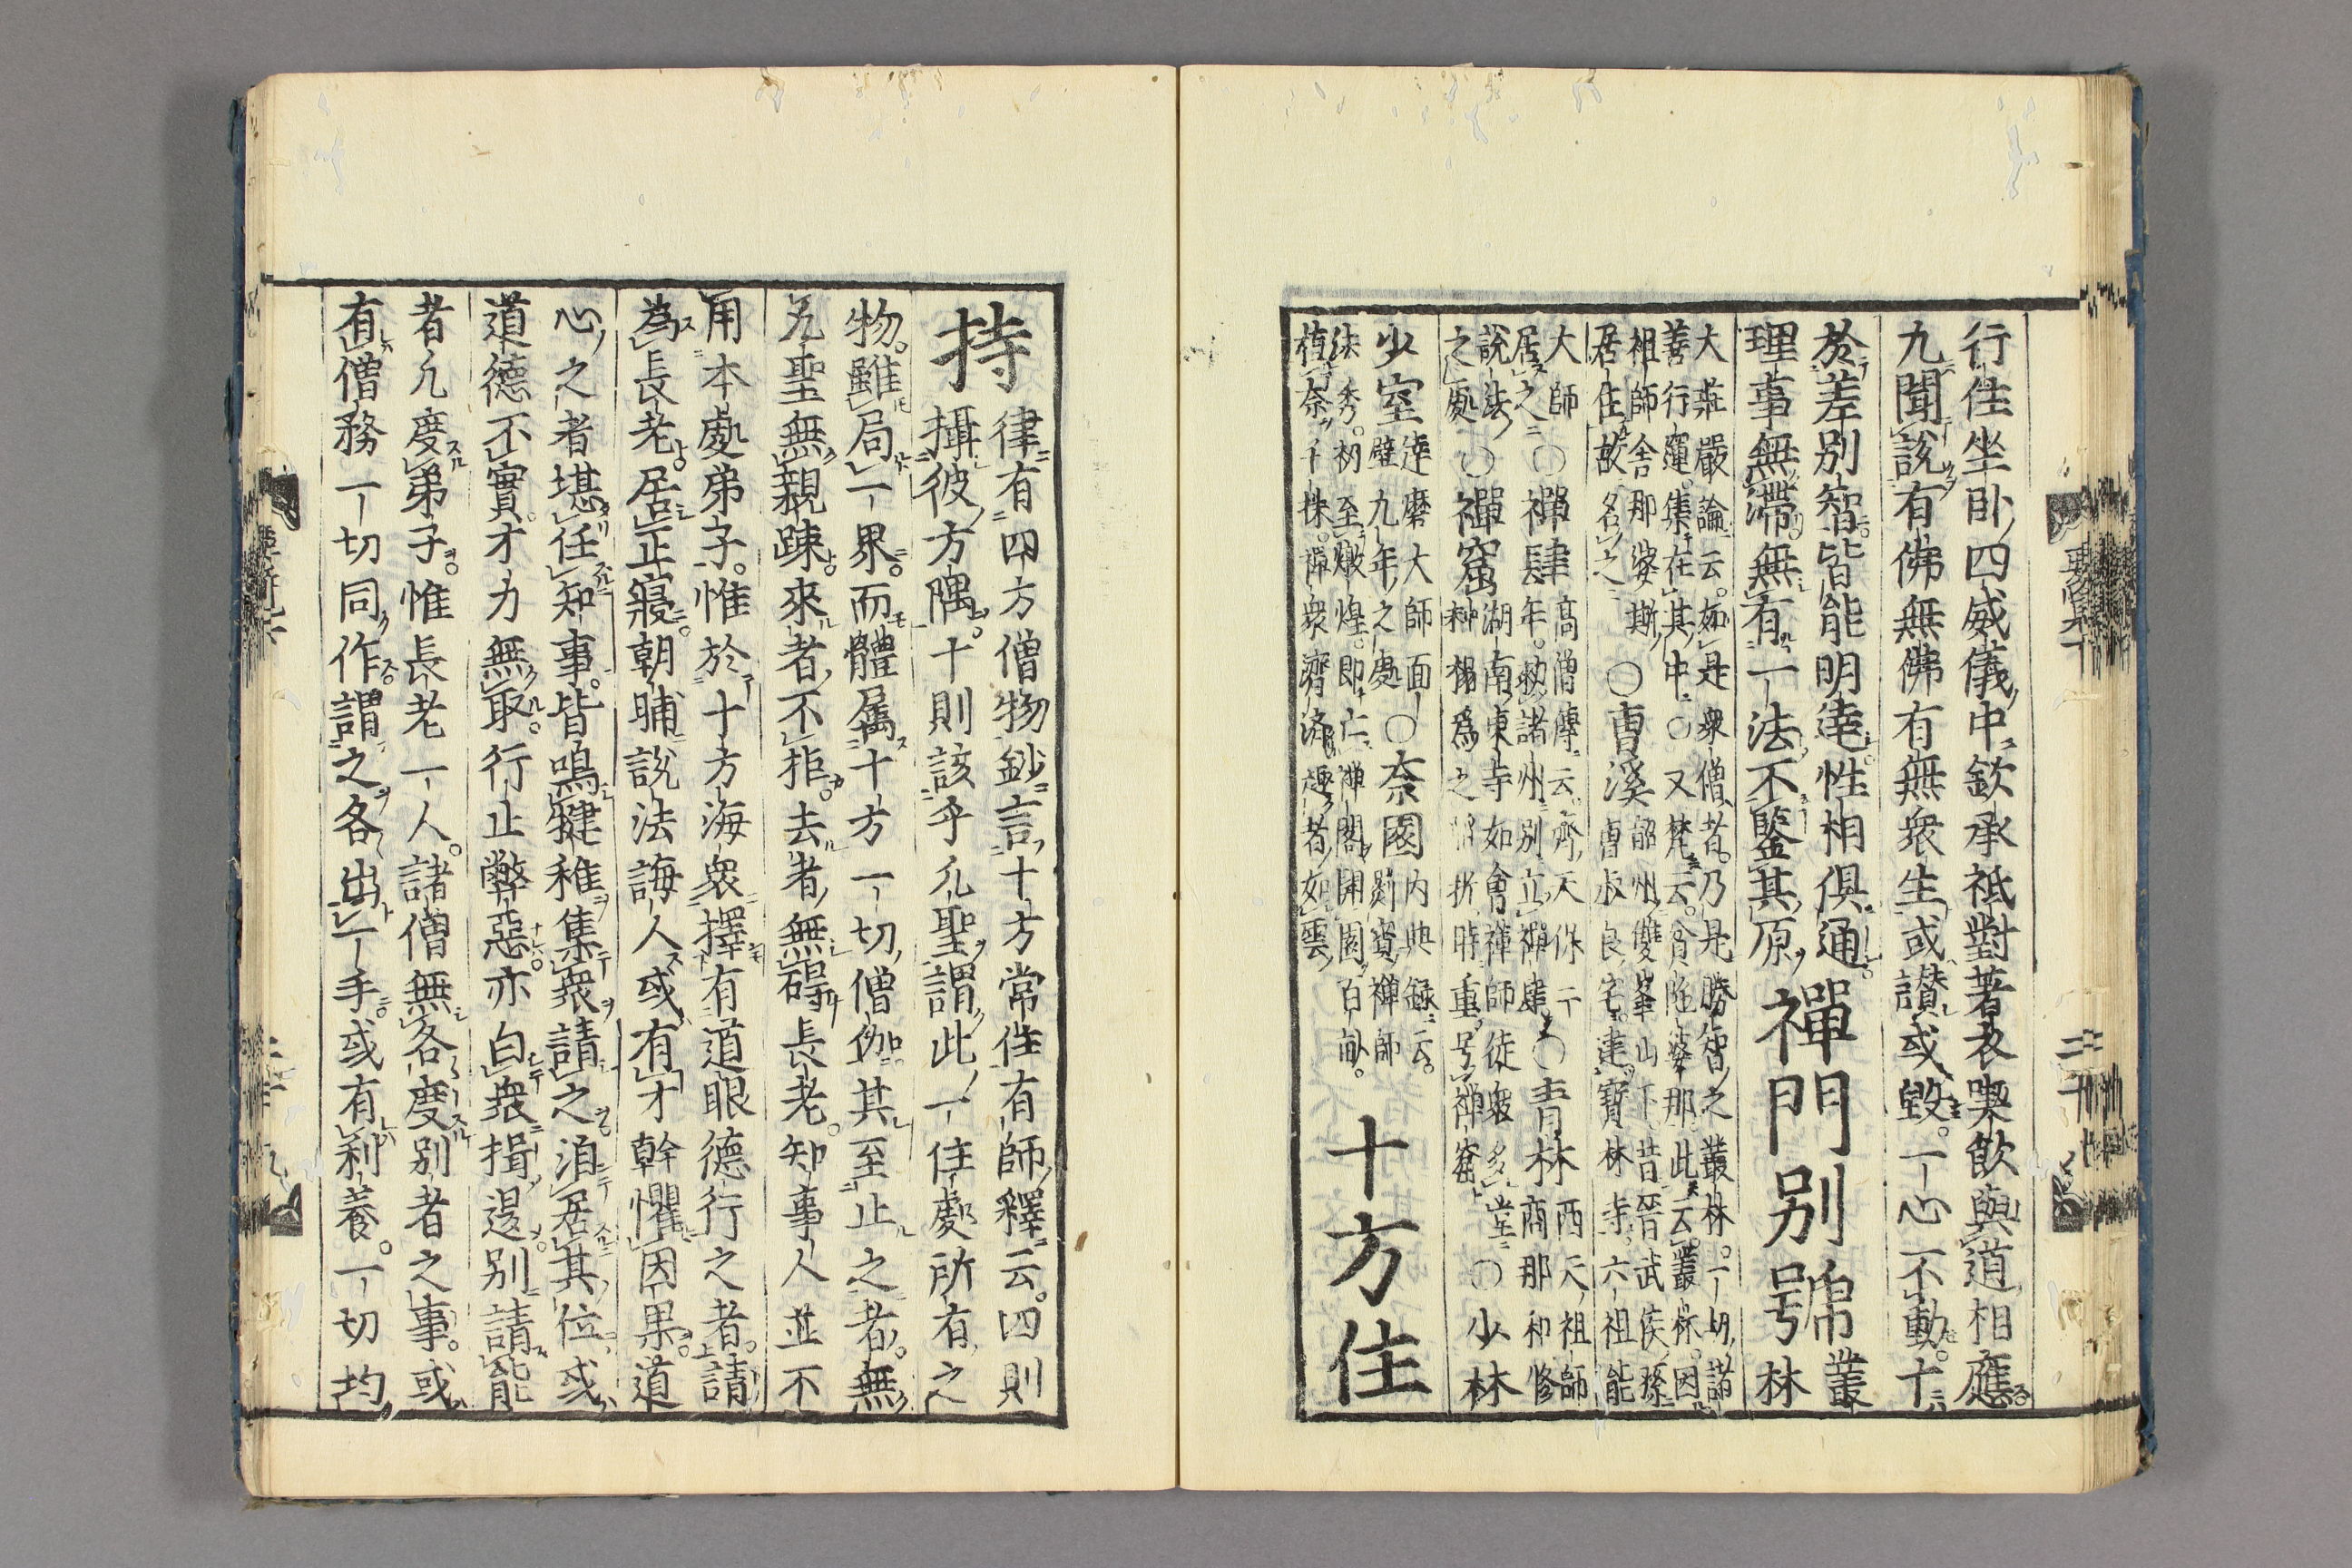 行住坐卧四威儀中欽承祇對著衣喫飲與道相應
九聞説有佛無佛有無衆生或讃或毀一心不動十
於差别智皆能明達性相俱通 禪門别號 叢
理事無滯無有一法不鑒其原 林
大莊嚴論云如是衆僧者乃是勝智之叢林一切諸
善行運集在其中○又梵云貧陁婆那此云叢林因
祖師舍那婆斯
居住故名之 ○曹溪 韶州雙峯山下昔晉武侯孫
曹叔良宅建寶林寺六祖能
大師
居之 ○禪肆 高僧傳云齊天保二
年勑諸州别立禪肆 ○青林 西天祖師
商那和修
説法
之處 ○禪窟 湖南東寺如會禪師徒衆多堂
折時重号禪窟 ○少林
少室 達磨大師面
壁九年之處 ○奈園 内典録云
罽賓禪師
法秀初至燉煌即亡禪閣開園百畝
植奈千株禪衆濟濟趣者如雲
十方住
持 律有四方僧物鈔言十方常住有師釋云四則
攝彼方隅十則該乎凡聖謂此一住處所有之
物雖局一界而體屬十方一切僧伽其至止之者無
凡聖無親踈來者不拒去者無礙長老知事人並不
用本處弟子惟於十方海衆擇有道眼德行之者請
為長老居正寢朝晡説法誨人或有才幹懼因果道
心之者堪任知事皆鳴犍稚集衆請之洎居其位或
道德不實才力無取行止弊惡亦白衆揖退别請能
者凡度弟子惟長老一人諸僧無各度别者之事或
有僧務一切同作謂之各出一手或有利養一切均